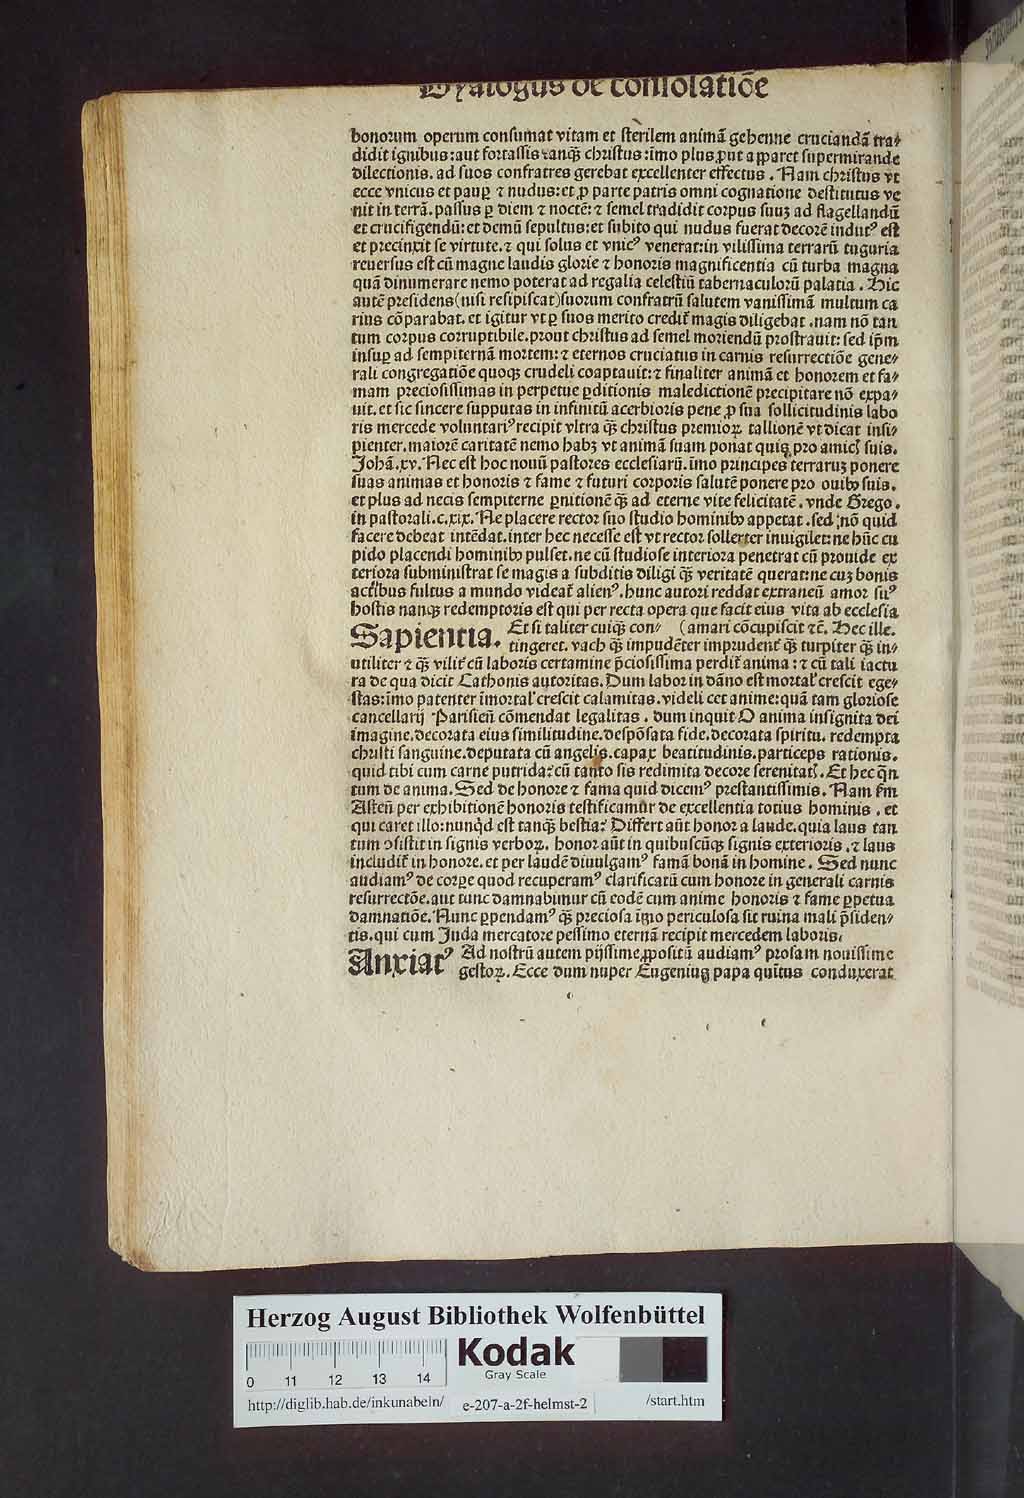 Dyalogus de consolatiōe
bonorum operum consumat vitam et sterilem animā gehenne cruciandā tra⸗
didit ignibus: aut fortassis tanq̄ christus: īmo plus ꝓut apparet supermirande
dilectionis. ad suos confratres gerebat excellenter effectus. Nam christus vt
ecce vnicus et pauꝑ ⁊ nudus: et ꝓ parte patris omni cognatione destitutus ve
nit in terrā. passus ꝑ diem ⁊ noctē: ⁊ semel tradidit corpus suuꝫ ad flagellandū
et crucifigendū: et demū sepultus: et subito qui nudus fuerat decorē indutꝰ est
et precinxit se virtute. ⁊ qui solus et vnicꝰ venerat: in vilissima terrarū tuguria
reuersus est cū magne laudis glorie ⁊ honoris magnificentia cū turba magna
quā dinumerare nemo poterat ad regalia celestiū tabernaculorū palatia. Hic
autē presidens (nisi resipiscat) suorum confratrū salutem vanissimā multum ca
rius cōparabat. et igitur vt ꝑ suos merito credit᷑ magis diligebat. nam nō tan
tum corpus corruptibile. prout christus ad semel moriendū prostrauit: sed ip̄m
insuꝑ ad sempiternā mortem: ⁊ eternos cruciatus in carnis resurrectiōe gene⸗
rali congregatiōe quoqꝫ crudeli coaptauit: ⁊ finaliter animā et honorem et fa⸗
mam preciosissimas in perpetue ꝑditionis maledictionē precipitare nō expa⸗
uit. et sic sincere supputas in infinitū acerbioris pene ꝓ sua sollicitudinis labo
ris mercede voluntariꝰ recipit vltra q̄ꝫ christus premioꝝ tallionē vt dicat insi⸗
pienter. maiorē caritatē nemo habꝫ vt animā suam ponat quis pro amicꝭ suis.
Johā. xv. Nec est hoc nouū pastores ecclesiarū. imo principes terraruꝫ ponere
suas animas et honoris ⁊ fame ⁊ futuri corporis salutē ponere pro ouibꝰ suis.
et plus ad necis sempiterne ꝑnitionē q̄ꝫ ad eterne vite felicitatē. vnde Grego.
in pastorali. c. xix. Ne placere rector suo studio hominibꝰ appetat. sed nō quid
facere debeat intēdat. inter hec necesse est vt rector sollerter inuigilet: ne hūc cu
pido placendi hominibꝰ pulset. ne cū studiose interiora penetrat cū prouide ex
teriora subministrat se magis a subditis diligi q̄ꝫ veritatē querat: ne cuꝫ bonis
actibus fultus a mundo videat᷑ alienꝰ. hunc autori reddat extraneū amor suꝰ
hostis nanqꝫ redemptoris est qui per recta opera que facit eius vita ab ecclesia
Sapientia. Et si taliter cuiq̄ꝫ con⸗ (amari cōcupiscit ⁊c̄. Hec ille.
tingeret. vach q̄ꝫ impudēter imprudent᷑ q̄ꝫ turpiter q̄ꝫ in⸗
utiliter ⁊ q̄ꝫ vilit᷑ cū laboris certamine p̄ciosissima perdit᷑ anima: ⁊ cū tali iactu
ra de qua dicit Cathonis autoritas. Dum labor in dāno est mortaꝉ crescit ege⸗
stas: imo patenter īmortaꝉ crescit calamitas. videli cet anime: quā tam gloriose
cancellarij Parisieñ cōmendat legalitas. dum inquit O anima insignita dei
imagine. decorata eius similitudine. despōsata fide. decorata spiritu. redempta
christi sanguine. deputata cū angelis. capax beatitudinis. particeps rationis.
quid tibi cum carne putrida? cū tanto sis redimita decore serenitatꝭ. Et hec q̄n
tum de anima. Sed de honore ⁊ fama quid dicemꝰ prestantissimis. Nam fm̄
Asteñ per exhibitionē honoris testificamur de excellentia totius hominis. et
qui caret illo: nunq̇d est tanq̄ꝫ bestia? Differt aūt honor a laude. quia laus tan
tum ↄsistit in signis verboꝝ. honor aūt in quibuscūqꝫ signis exterioris. ⁊ laus
includit᷑ in honore. et per laudē diuulgamꝰ famā bonā in homine. Sed nunc
audiamꝰ de corꝑe quod recuperamꝰ clarificatū cum honore in generali carnis
resurrectōe. aut tunc damnabimur cū eodē cum anime honoris ⁊ fame ꝑpetua
damnatiōe. Nunc ꝑpendamꝰ q̄ꝫ preciosa īmo periculosa sit ruina mali p̄siden⸗
tis. qui cum Juda mercatore pessimo eternā recipit mercedem laboris.
Anxiatꝰ Ad nostrū autem pijssime ꝓpositū audiamꝰ prosam nouissime
gestoꝝ. Ecce dum nuper Eugeniuꝫ papa quītus conduxerat
Herzog August Bibliothek Wolfenbüttel
Kodak
Gray Scale
0 11 12 13 14
http://diglib.hab.de/inkunabeln/ e-207-a-2f-helmst-2 /start.htm